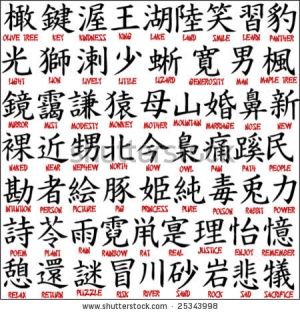 橄 鍵 渥 王 湖 陸 笑 習 豹
OLIVE TREE KEY KINDNESS KING LAKE LAND SMILE LEARN PANTHER
光 獅 溂 少 蜥 寛 男 楓
LIGHT LION LIVELY LITTLE LIZARD GENEROSITY MAN MAPLE TREE
鏡 靄 謙 猿 母 山 婚 鼻 新
MIRROR MIST MODESTY MONKEY MOTHER MOUNTAIN MARRIAGE NOSE NEW
裸 近 甥 北 今 梟 痛 蹊 民
NAKED NEAR NEPHEW NORTH NOW OWL PAIN PATH PEOPLE
勘 者 絵 豚 姫 純 毒 兎 力
INTUITION PERSON PICTURE PIG PRINCESS PURE POISON RABBIT POWER
詩 苓 雨 霓 鼠 寔 理 怡 憶
POEM PLANT RAIN RAINBOW RAT REAL JUSTICE ENJOY REMEMBER
憩 還 謎 冒 川 砂 岩 悲 犠
RELAX RETURN PUZZLE RISK RIVER SAND ROCK SAD SACRIFICE
shutterstock
www.shutterstock.com · 25343998